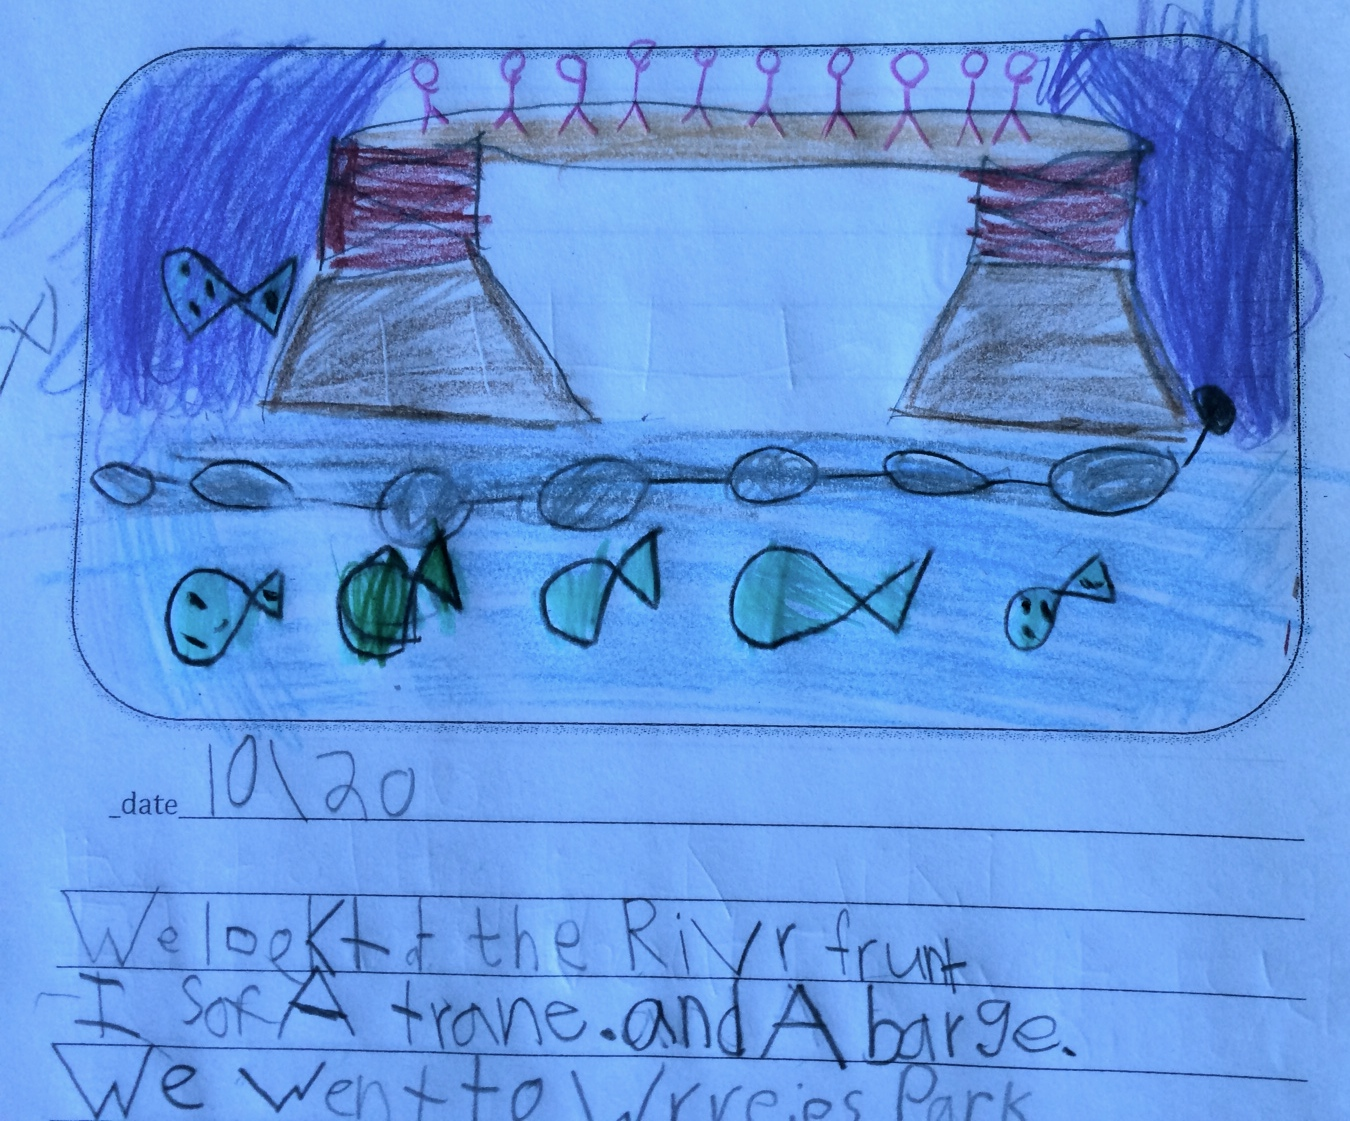 _date 10\20
We lookt t the Rivr frunt
I sof A trane. and A barge.
We went to Park